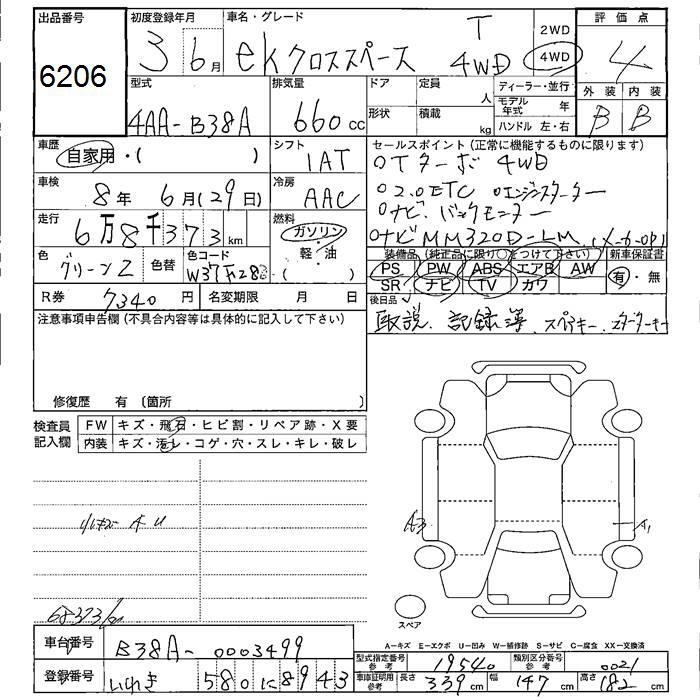 出品番号
6206
初度登録年月
3 6月
車名・グレード
ekクロススペース T 4WD
2WD
4WD
評価点
4
外装 内装
B B
型式
4AA-B38A
排気量
660cc
ドア
形状
定員 人
積載 kg
ディーラー・並行
モデル年式 年
ハンドル 左・右
車歴
自家用・( )
シフト
1AT
車検
8年 6月(29日)
冷房
AAC
走行
6万8千373km
燃料
ガソリン
軽・油
( )
色
グリーン2
色替
色コード
R券
7340円
名変期限 月 日
セールスポイント(正常に機能するものに限ります)
○Tターボ 4WD
○2.0ETC ○エンジンスターター
○ナビ、バックモニター
○ナビMM320D-LM
装備品(純正品に限り○をつけて下さい)
新車保証書
PS PW ABS エアB AW
SR ナビ TV カワ
有・無
後日品
取説、記録簿、スペアキー、スターターキー
注意事項申告欄(不具合内容等は具体的に記入して下さい)
修復歴 有 (箇所
検査員記入欄
FW キズ・飛石・ヒビ割・リペア跡・X要
内装 キズ・汚レ・コゲ・穴・スレ・キレ・破レ
68373/
A3
A1
スペア
A=キズ E=エクボ U=凹み W=補修跡 S=サビ C=腐食 XX=交換済
車台番号
B38A-0003499
登録番号
いわき 580 に 8943
型式指定番号 参考
19540
類別区分番号 参考
0021
車庫証明用 参考
長さ 339cm
幅 147cm
高さ 182cm